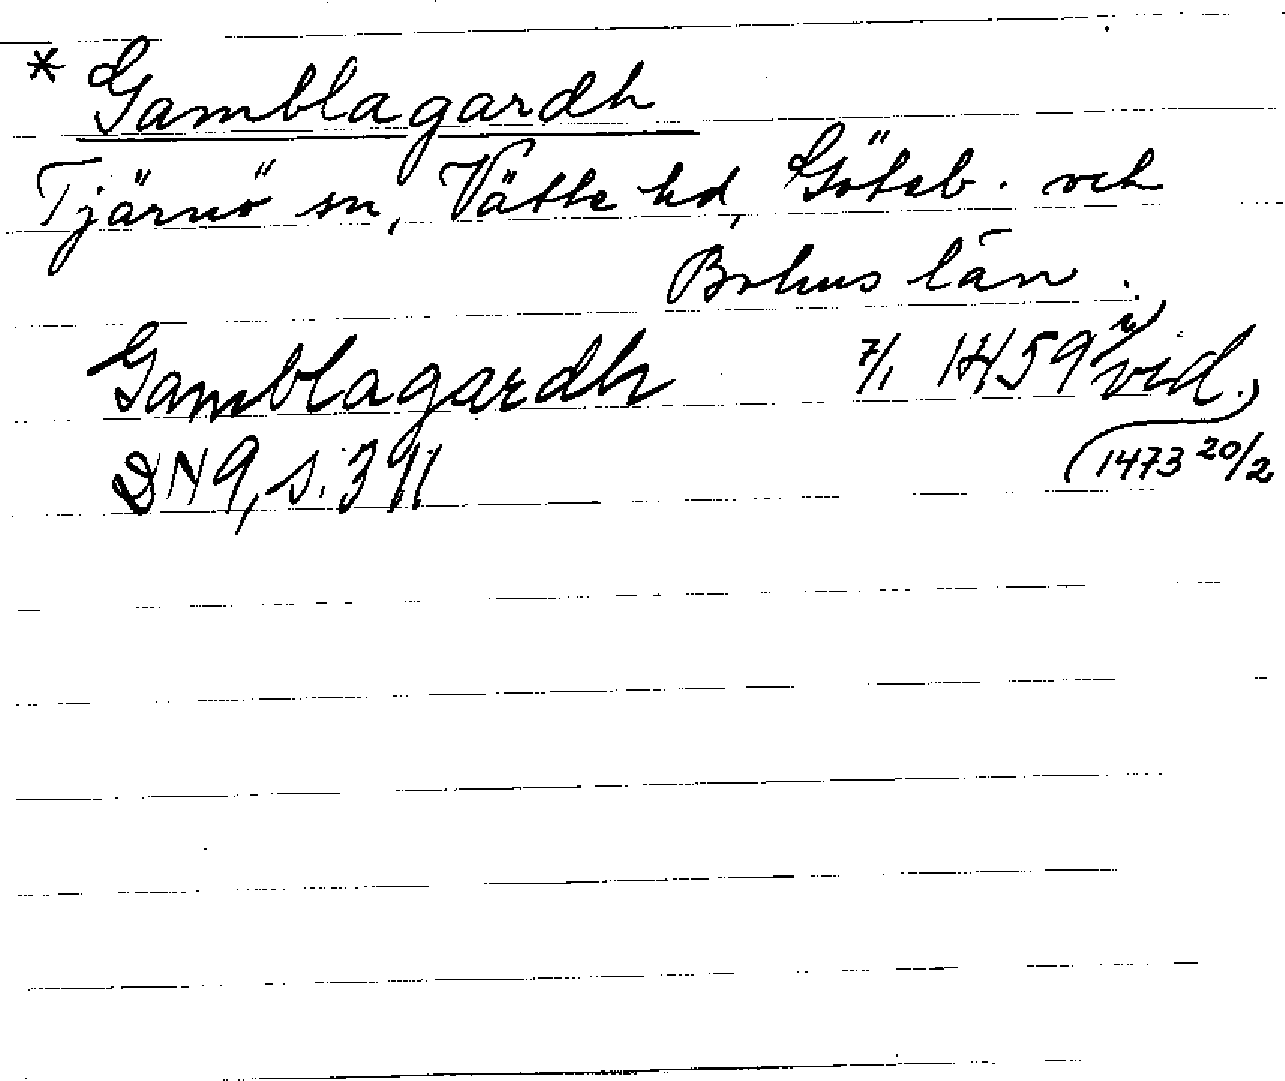 * Gamblagardh
Tjärnö sn, Vätte hd, Göteb. och
Bohus län.
Gamblagardh 7/1 1459 i vid.
DN 9, s. 391 (1473 20/2